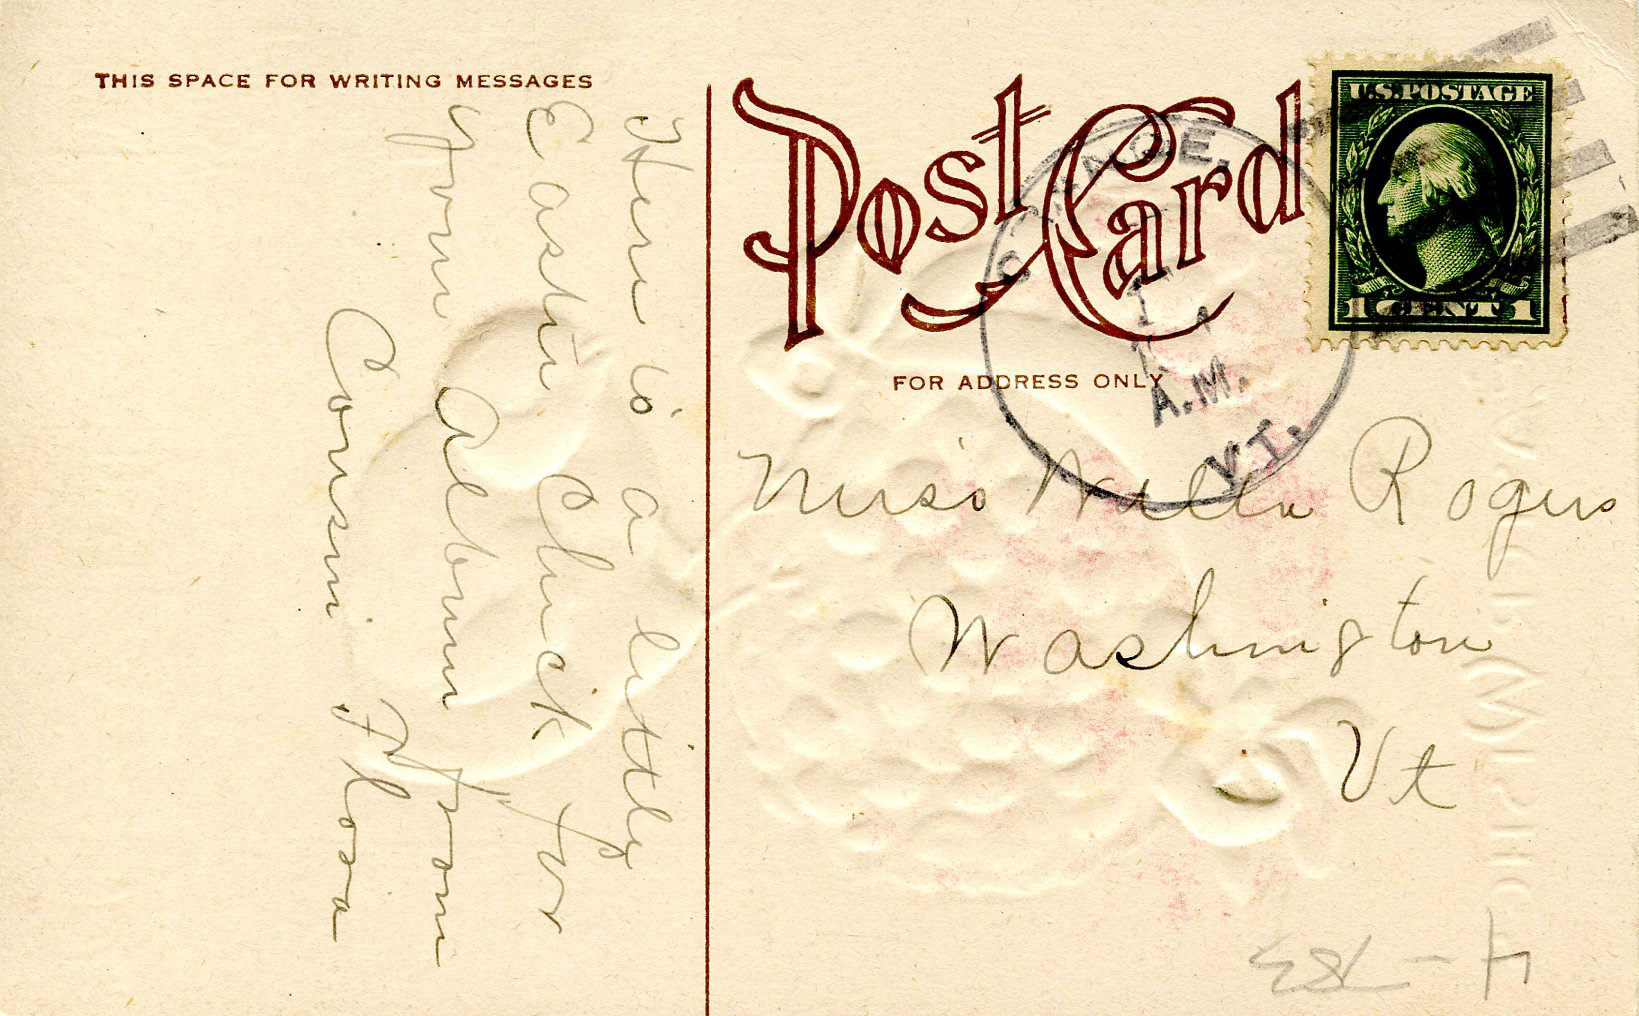 THIS SPACE FOR WRITING MESSAGES
Here is a little
Easter Chick for
your Album from
Cousin Flosa
Post Card
FOR ADDRESS ONLY
U.S. POSTAGE
1 CENT 1
A.M.
VT.
Miss Nella Rogers
Washington
Vt